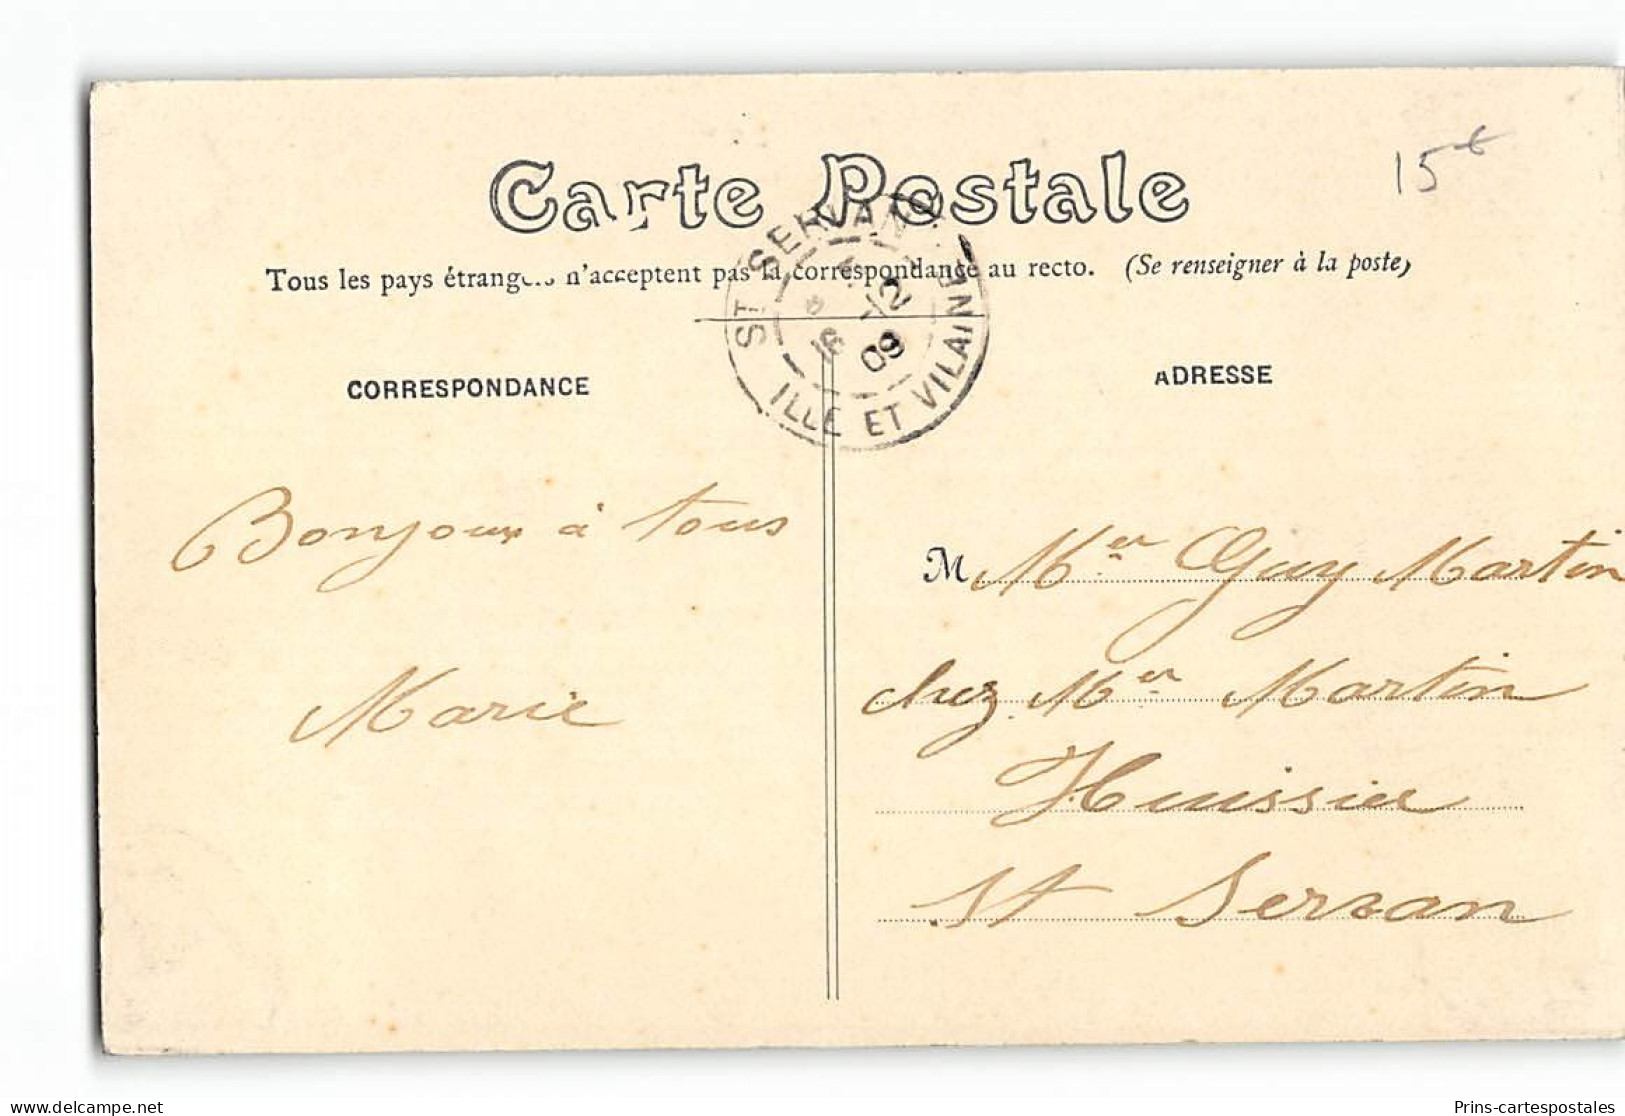 Carte Postale
15€
Tous les pays étrangers n'acceptent pas la correspondance au recto. (Se renseigner à la poste)
ST SERVAN
16 -12
09
ILLE ET VILAINE
CORRESPONDANCE
ADRESSE
Bonjour à tous
Marie
M Mer Guy Martin
chez Mer Martin
Huissier
St Servan
delcampe.net
Prins-cartespostales